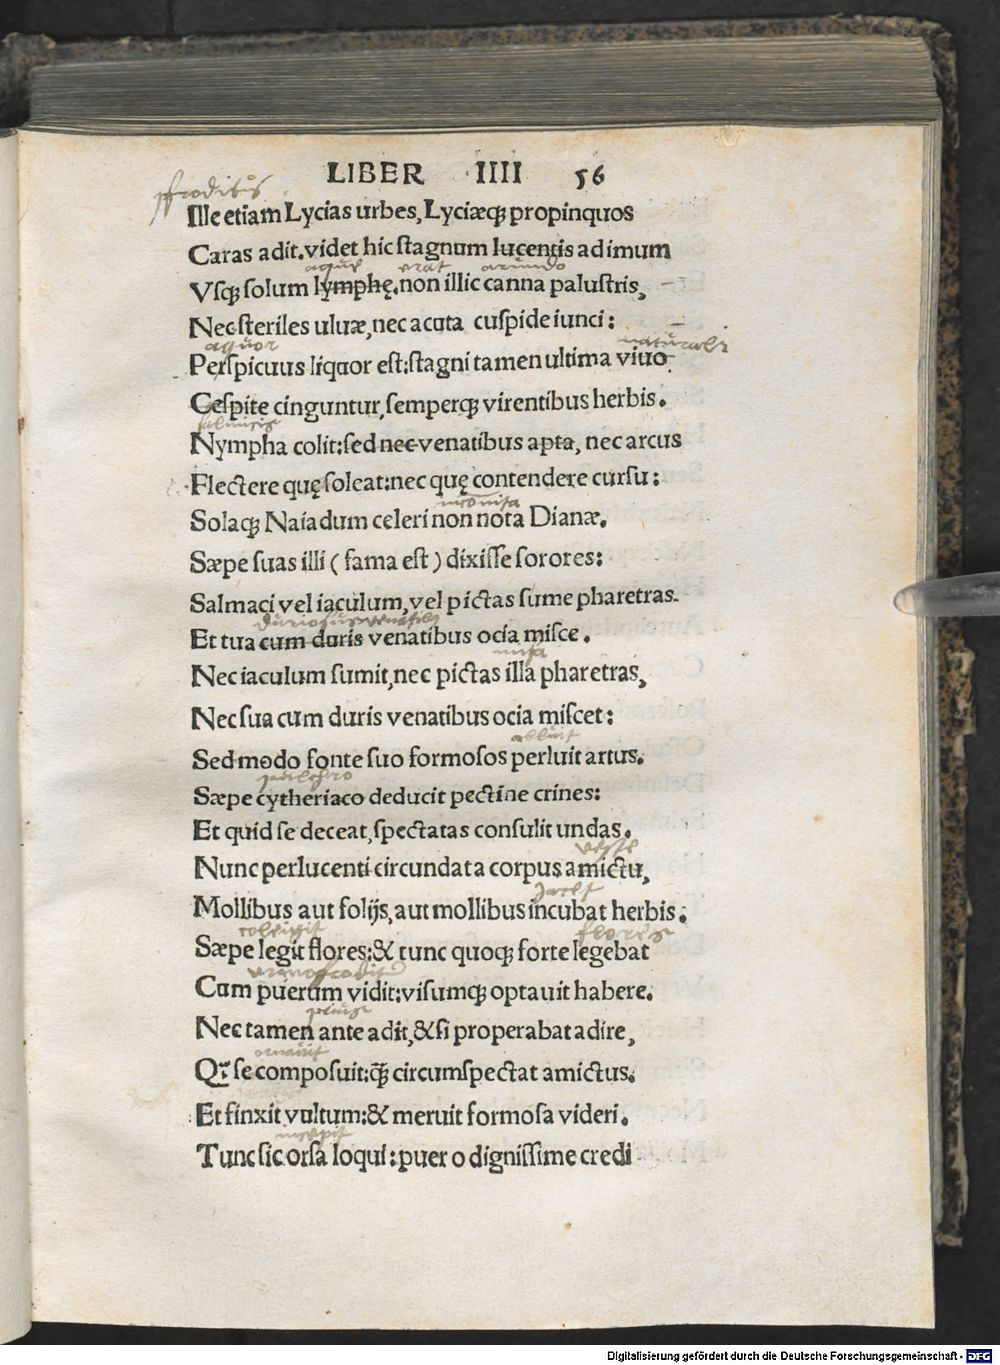 LIBER IIII 56
Ille etiam Lycias urbes, Lyciæq; propinquos
Caras adit. videt hic stagnum lucentis ad imum
aquę erat arundo
Vsq; solum lymphę. non illic canna palustris,
Nec steriles uluæ, nec acuta cuspide iunci:
aquor naturali
Perspicuus liquor est: stagni tamen ultima viuo
Cespite cinguntur, semperq; virentibus herbis.
salmacis
Nympha colit: sed nec venatibus apta, nec arcus
Flectere quę soleat: nec quę contendere cursu:
incognita
Solaq; Naiadum celeri non nota Dianæ.
Sæpe suas illi ( fama est ) dixisse sorores:
Salmaci vel iaculum, vel pictas sume pharetras.
Et tua cum duris venatibus ocia misce.
Nec iaculum sumit, nec pictas illa pharetras,
Nec sua cum duris venatibus ocia miscet:
abluit
Sed modo fonte suo formosos perluit artus.
pulchro
Sæpe cytheriaco deducit pectine crines:
Et quid se deceat, spectatas consulit undas.
veste
Nunc perlucenti circundata corpus amictu,
jacet
Mollibus aut folijs, aut mollibus incubat herbis:
colligit flores
Sæpe legit flores: & tunc quoq; forte legebat
Cum puerum vidit: visumq; optauit habere.
prius
Nec tamen ante adit, & si properabat adire,
ornauit
Qꝫ se composuit: q̃ꝫ circumspectat amictus.
Et finxit vultum: & meruit formosa videri.
incepit
Tunc sic orsa loqui: puer o dignissime credi
Digitalisierung gefördert durch die Deutsche Forschungsgemeinschaft - DFG